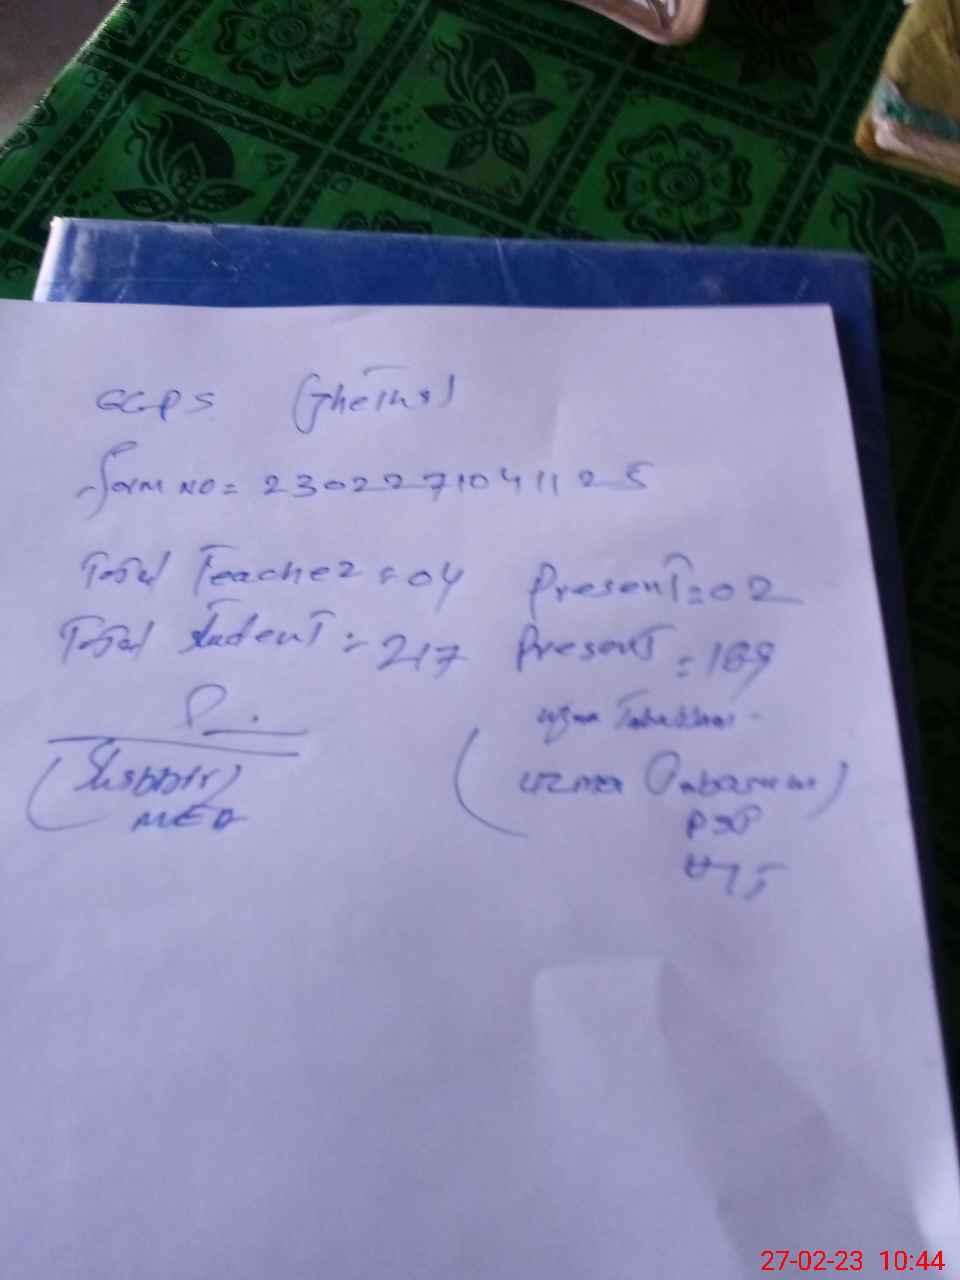 GGPS
Form NO = 2302271041125
Total Teacher = 04 Present = 02
Total student = 217 Present = 169
(Shabbir)
MEA
uzma Tabassum
(uzma Tabasum)
PST
27-02-23 10:44